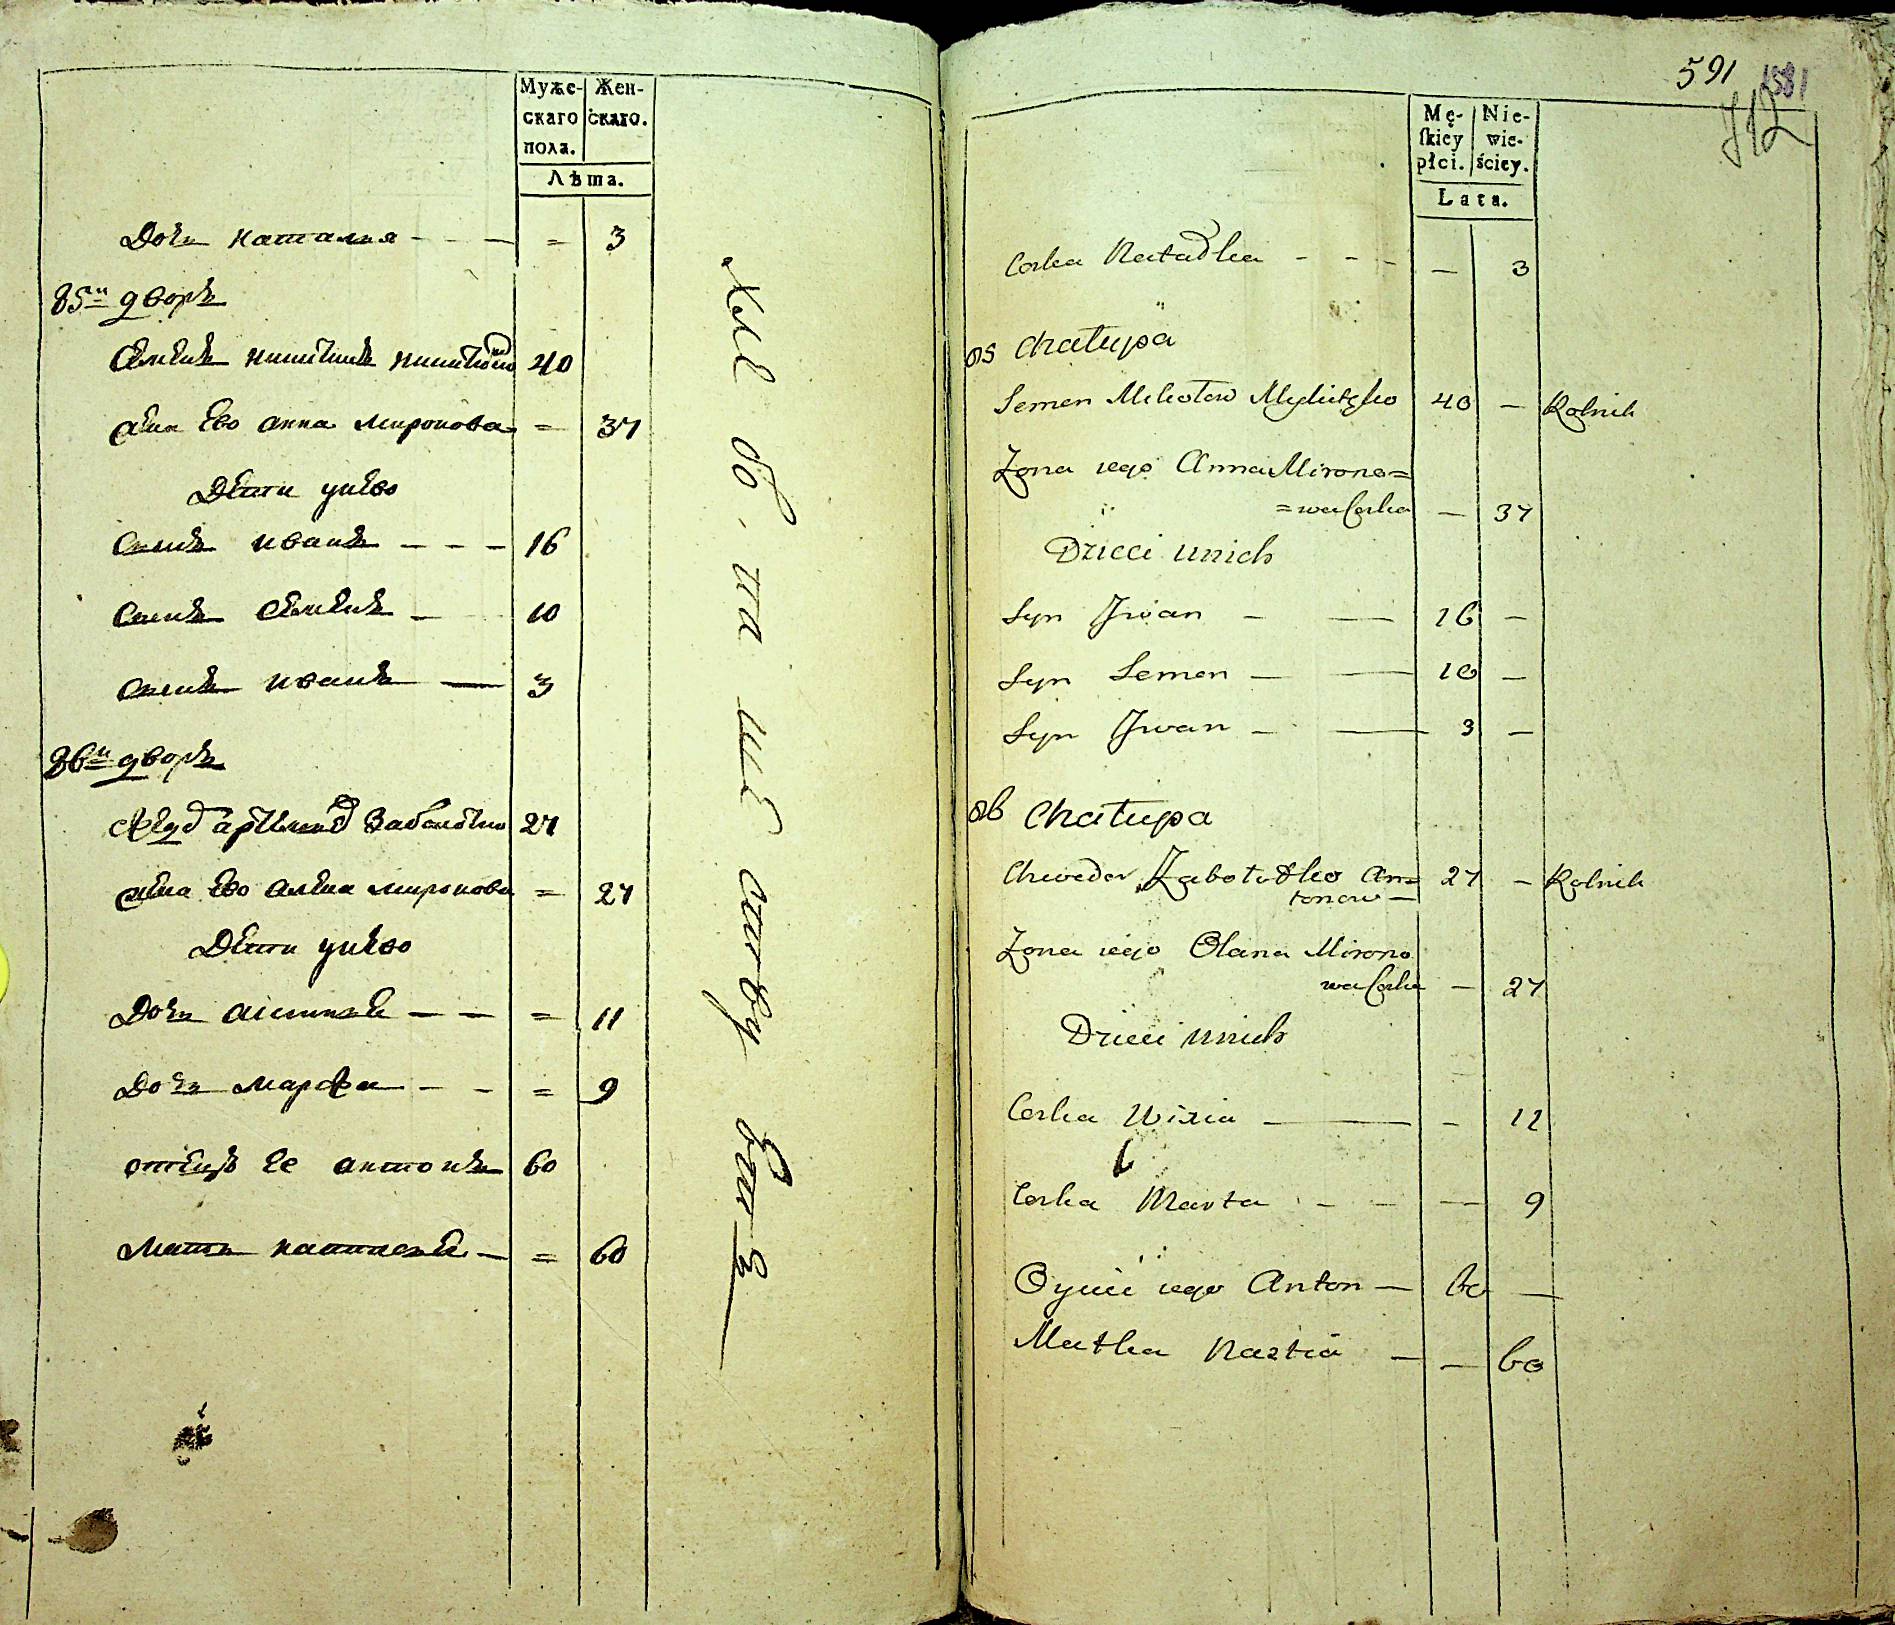 Муже-
скаго
пола.
Жен-
скаго.
Лѣта.
Дочь Наталия - - - = 3
85й дворъ
Семенъ Никитинъ 40
Жена ево Анна Миронова = 37
Дети у нево
Сынъ Иванъ - - - 16
Сынъ Семенъ - 10
Сынъ Иванъ — 3
86й дворъ
27
Жена ево Алена Миронова = 27
Дети у нево
Дочь - - = 11
Дочь Марфа - - = 9
отецъ ее Антонъ 60
Мать - = 60
591
581
712
Mę-
skiey
płci.
Nie-
wie-
ściey.
Lata.
Corka Natalka - - - — 3
85 Chałupa
Semen 40 — Rolnik
Zona iego Anna Mirono=
=wa Corka — 37
Dzieci unich
Syn Jwan - — 16 —
Syn Semen - — 10 —
Syn Jwan - — 3 —
86 Chałupa
Chwedor Zabołotko An=
tonow — 27 — Rolnik
Zona iego Olana Mirono
wa Corka — 27
Dzieci unich
Corka — - 11
Corka Marta - - — 9
Oyciec iego Anton — 60 —
Matka Nastia — — 60